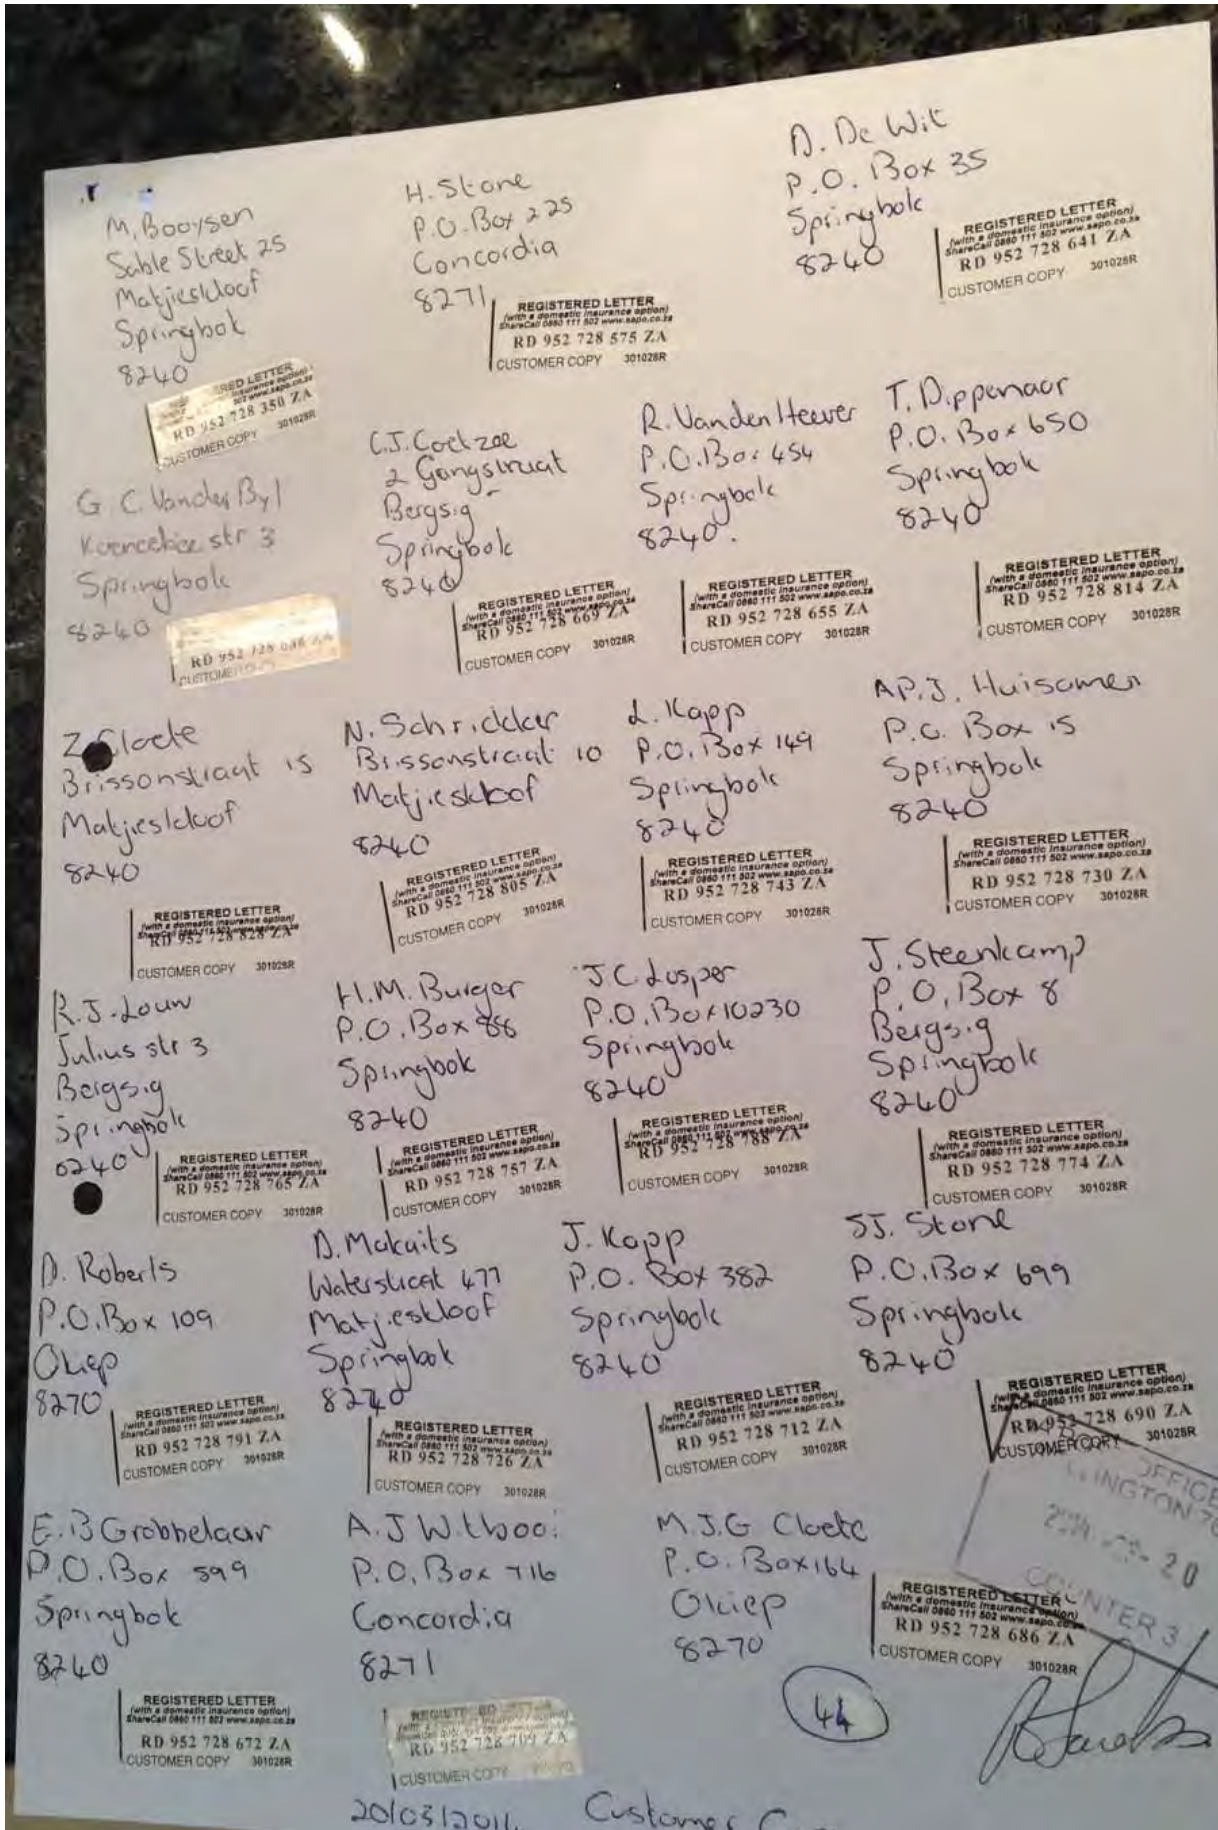 M. Booysen
Sable Street 25
Matjieskloof
Springbok
8240
RED LETTER
insurance option)
502 www.sapo.co.za
RD 952 728 350 ZA
CUSTOMER COPY 301028R
H. Stone
P.O. Box 225
Concordia
8271
REGISTERED LETTER
(with a domestic insurance option)
ShareCall 0860 111 502 www.sapo.co.za
RD 952 728 575 ZA
CUSTOMER COPY 301028R
D. De Wit
P.O. Box 35
Springbok
8240
REGISTERED LETTER
(with a domestic insurance option)
ShareCall 0860 111 502 www.sapo.co.za
RD 952 728 641 ZA
CUSTOMER COPY 301028R
G. C. Vander Byl
str 3
Springbok
8240
RD 952 728
CUSTOMER
C.J. Coetzee
2 Gangstraat
Bergsig
Springbok
8240
REGISTERED LETTER
(with a domestic insurance option)
ShareCall 0860 111 502 www.sapo.co.za
RD 952 728 669 ZA
CUSTOMER COPY 301028R
R. Vanden Heever
P.O. Box 454
Springbok
8240.
REGISTERED LETTER
(with a domestic insurance option)
ShareCall 0860 111 502 www.sapo.co.za
RD 952 728 655 ZA
CUSTOMER COPY 301028R
T. Dippenaar
P.O. Box 650
Springbok
8240
REGISTERED LETTER
(with a domestic insurance option)
ShareCall 0860 111 502 www.sapo.co.za
RD 952 728 814 ZA
CUSTOMER COPY 301028R
Z Cloete
Brissonstraat 15
Matjieskloof
8240
REGISTERED LETTER
(with a domestic insurance option)
ShareCall 0860 111 502 www.sapo.co.za
RD 952 728 828 ZA
CUSTOMER COPY 301028R
N. Schrickker
Brissonstraat 10
Matjieskloof
8240
REGISTERED LETTER
(with a domestic insurance option)
ShareCall 0860 111 502 www.sapo.co.za
RD 952 728 805 ZA
CUSTOMER COPY 301028R
L. Kapp
P.O. Box 149
Springbok
8240
REGISTERED LETTER
(with a domestic insurance option)
ShareCall 0860 111 502 www.sapo.co.za
RD 952 728 743 ZA
CUSTOMER COPY 301028R
A.P.J. Huisamen
P.O. Box 15
Springbok
8240
REGISTERED LETTER
(with a domestic insurance option)
ShareCall 0860 111 502 www.sapo.co.za
RD 952 728 730 ZA
CUSTOMER COPY 301028R
R.J. Louw
Julius str 3
Bergsig
Springbok
8240
REGISTERED LETTER
(with a domestic insurance option)
ShareCall 0860 111 502 www.sapo.co.za
RD 952 728 765 ZA
CUSTOMER COPY 301028R
H.M. Burger
P.O. Box 88
Springbok
8240
REGISTERED LETTER
(with a domestic insurance option)
ShareCall 0860 111 502 www.sapo.co.za
RD 952 728 757 ZA
CUSTOMER COPY 301028R
J C Losper
P.O. Box 10230
Springbok
8240
REGISTERED LETTER
(with a domestic insurance option)
ShareCall 0860 111 502 www.sapo.co.za
952 728 788 ZA
CUSTOMER COPY 301028R
J. Steenkamp
P.O. Box 8
Bergsig
Springbok
8240
REGISTERED LETTER
(with a domestic insurance option)
ShareCall 0860 111 502 www.sapo.co.za
RD 952 728 774 ZA
CUSTOMER COPY 301028R
D. Roberts
P.O. Box 109
Okiep
8270
REGISTERED LETTER
(with a domestic insurance option)
ShareCall 0860 111 502 www.sapo.co.za
RD 952 728 791 ZA
CUSTOMER COPY 301028R
D. Makaits
Waterstraat 477
Matjieskloof
Springbok
8240
REGISTERED LETTER
(with a domestic insurance option)
ShareCall 0860 111 502 www.sapo.co.za
RD 952 728 726 ZA
CUSTOMER COPY 301028R
J. Kapp
P.O. Box 382
Springbok
8240
REGISTERED LETTER
(with a domestic insurance option)
ShareCall 0860 111 502 www.sapo.co.za
RD 952 728 712 ZA
CUSTOMER COPY 301028R
SJ. Stone
P.O. Box 699
Springbok
8240
REGISTERED LETTER
(with a domestic insurance option)
ShareCall 0860 111 502 www.sapo.co.za
RD 952 728 690 ZA
CUSTOMER COPY 301028R
E.B Grobbelaar
P.O. Box 599
Springbok
8240
REGISTERED LETTER
(with a domestic insurance option)
ShareCall 0860 111 502 www.sapo.co.za
RD 952 728 672 ZA
CUSTOMER COPY 301028R
A.J Witbooi
P.O. Box 716
Concordia
8271
RD 952 728 709 ZA
CUSTOMER COPY
M.J.G Cloete
P.O. Box 164
Okiep
8270
REGISTERED LETTER
(with a domestic insurance option)
ShareCall 0860 111 502 www.sapo.co.za
RD 952 728 686 ZA
CUSTOMER COPY 301028R
OFFICE
20
COUNTER 3
44
20/03/2014 Customer